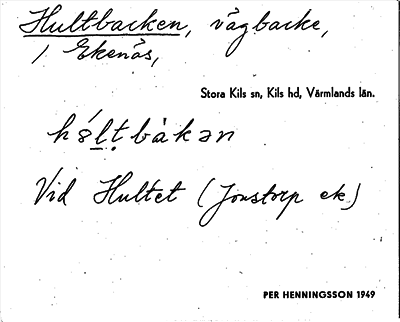 Hultbacken, vägbacke,
i Ekenäs,
Stora Kils sn, Kils hd, Värmlands län.
hóltbàkən
Vid Hultet (Jonstorp ek)
PER HENNINGSSON 1949